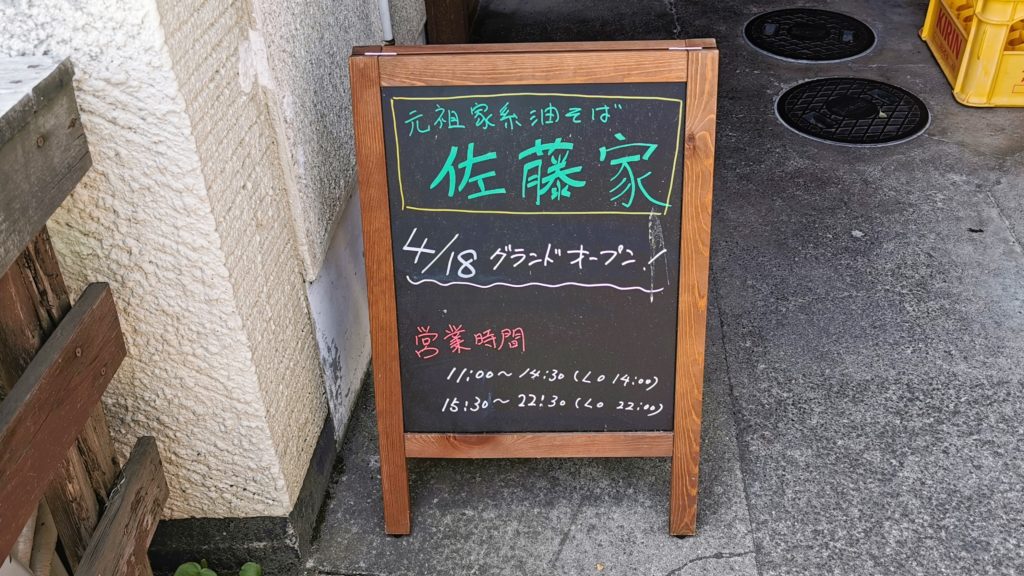 元祖家系油そば
佐藤家
4/18 グランドオープン!
営業時間
11:00～14:30(LO 14:00)
15:30～22:30(LO 22:00)
KIRIN